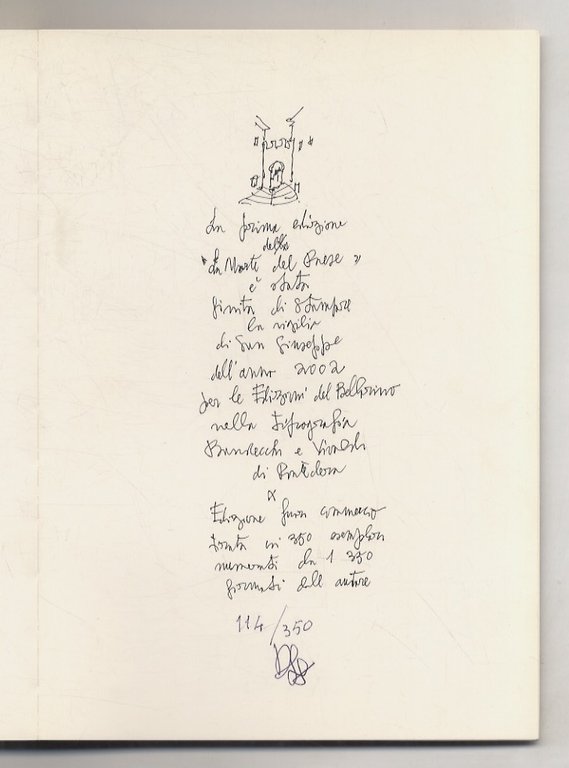 La prima edizione
della
"La Morte del Paese"
è stata
finita di stampare
la vigilia
di San Giuseppe
dell'anno 2002
per le Edizioni del
nella Tipografia
Bandecchi e Vivaldi
di Pontedera
Edizione fuori commercio
tirata in 350 esemplari
numerati da 1 350
firmati dall'autore
114/350